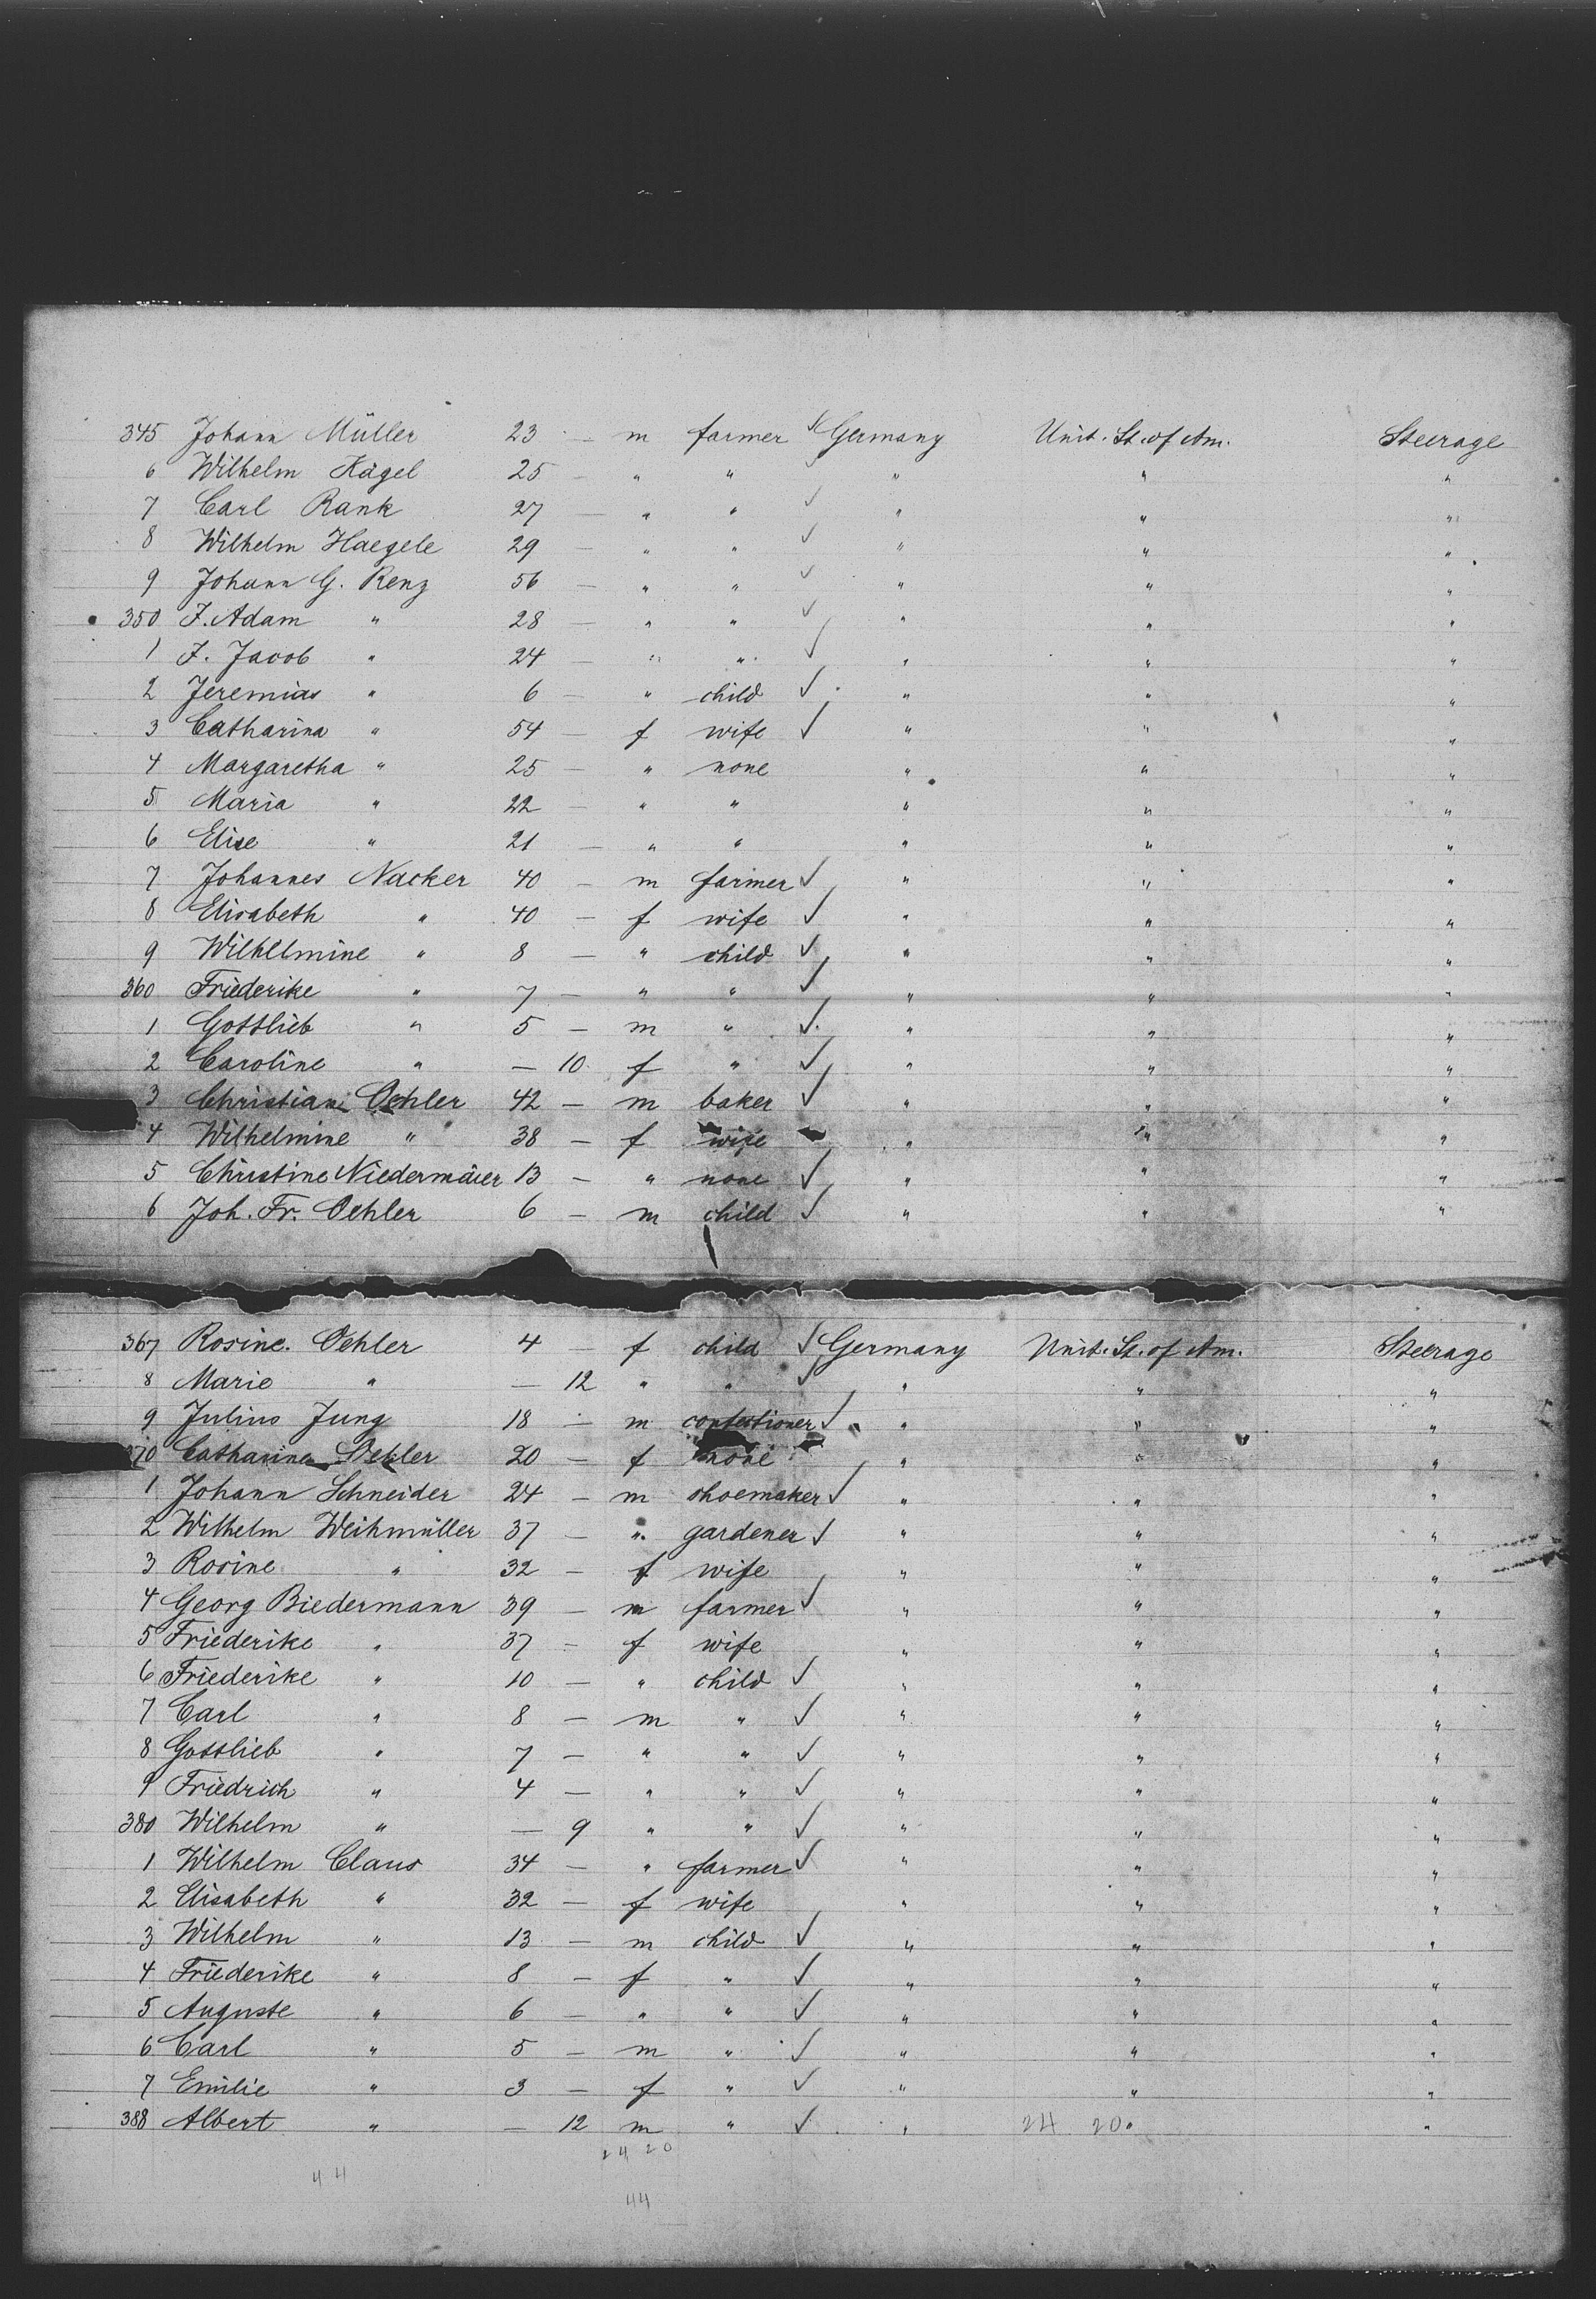 345 Johann Müller 23 - m farmer ✓ Germany Unit. St. of Am. Steerage
6 Wilhelm Kägel 25 - " " ✓ " " "
7 Carl Rank 27 - " " ✓ " " "
8 Wilhelm Haegele 29 - " " ✓ " " "
9 Johann G. Renz 56 - " " ✓ " " "
350 J. Adam " 28 - " " ✓ " " "
1 J. Jacob " 24 - " " ✓ " " "
2 Jeremias " 6 - " child ✓ " " "
3 Catharina " 54 - f wife ✓ " " "
4 Margaretha " 25 - " none " " "
5 Maria " 22 - " " " " "
6 Elise " 21 - " " " " "
7 Johannes Nacker 40 - m farmer ✓ " " "
8 Elisabeth " 40 - f wife ✓ " " "
9 Wilhelmine " 8 - " child ✓ " " "
360 Friederike " 7 - " " ✓ " " "
1 Gottlieb " 5 - m " ✓ " " "
2 Caroline " - 10 f " ✓ " " "
3 Christian Oehler 42 - m baker ✓ " " "
4 Wilhelmine " 38 - f wife " " "
5 Christine Niedermäier 13 - " none ✓ " " "
6 Joh. Fr. Oehler 6 - m child ✓ " " "
367 Rosine Oehler 4 - f child ✓ Germany Unit. St. of Am. Steerage
8 Marie " - 12 " " ✓ " " "
9 Julius Jung 18 - m confectioner ✓ " " "
370 Catharina Oehler 20 - f none " " "
1 Johann Schneider 24 - m shoemaker ✓ " " "
2 Wilhelm Weihmüller 37 - " gardener ✓ " " "
3 Rosine " 32 - f wife " " "
4 Georg Biedermann 39 - m farmer ✓ " " "
5 Friederike " 37 - f wife " " "
6 Friederike " 10 - " child ✓ " " "
7 Carl " 8 - m " ✓ " " "
8 Gottlieb " 7 - " " ✓ " " "
9 Friedrich " 4 - " " ✓ " " "
380 Wilhelm " - 9 " " ✓ " " "
1 Wilhelm Claus 34 - " farmer ✓ " " "
2 Elisabeth " 32 - f wife " " "
3 Wilhelm " 13 - m child ✓ " " "
4 Friederike " 8 - f " ✓ " " "
5 Auguste " 6 - " " ✓ " " "
6 Carl " 5 - m " ✓ " " "
7 Emilie " 3 - f " ✓ " " "
388 Albert " - 12 m " ✓ " 24 20 " "
24 20
44
44